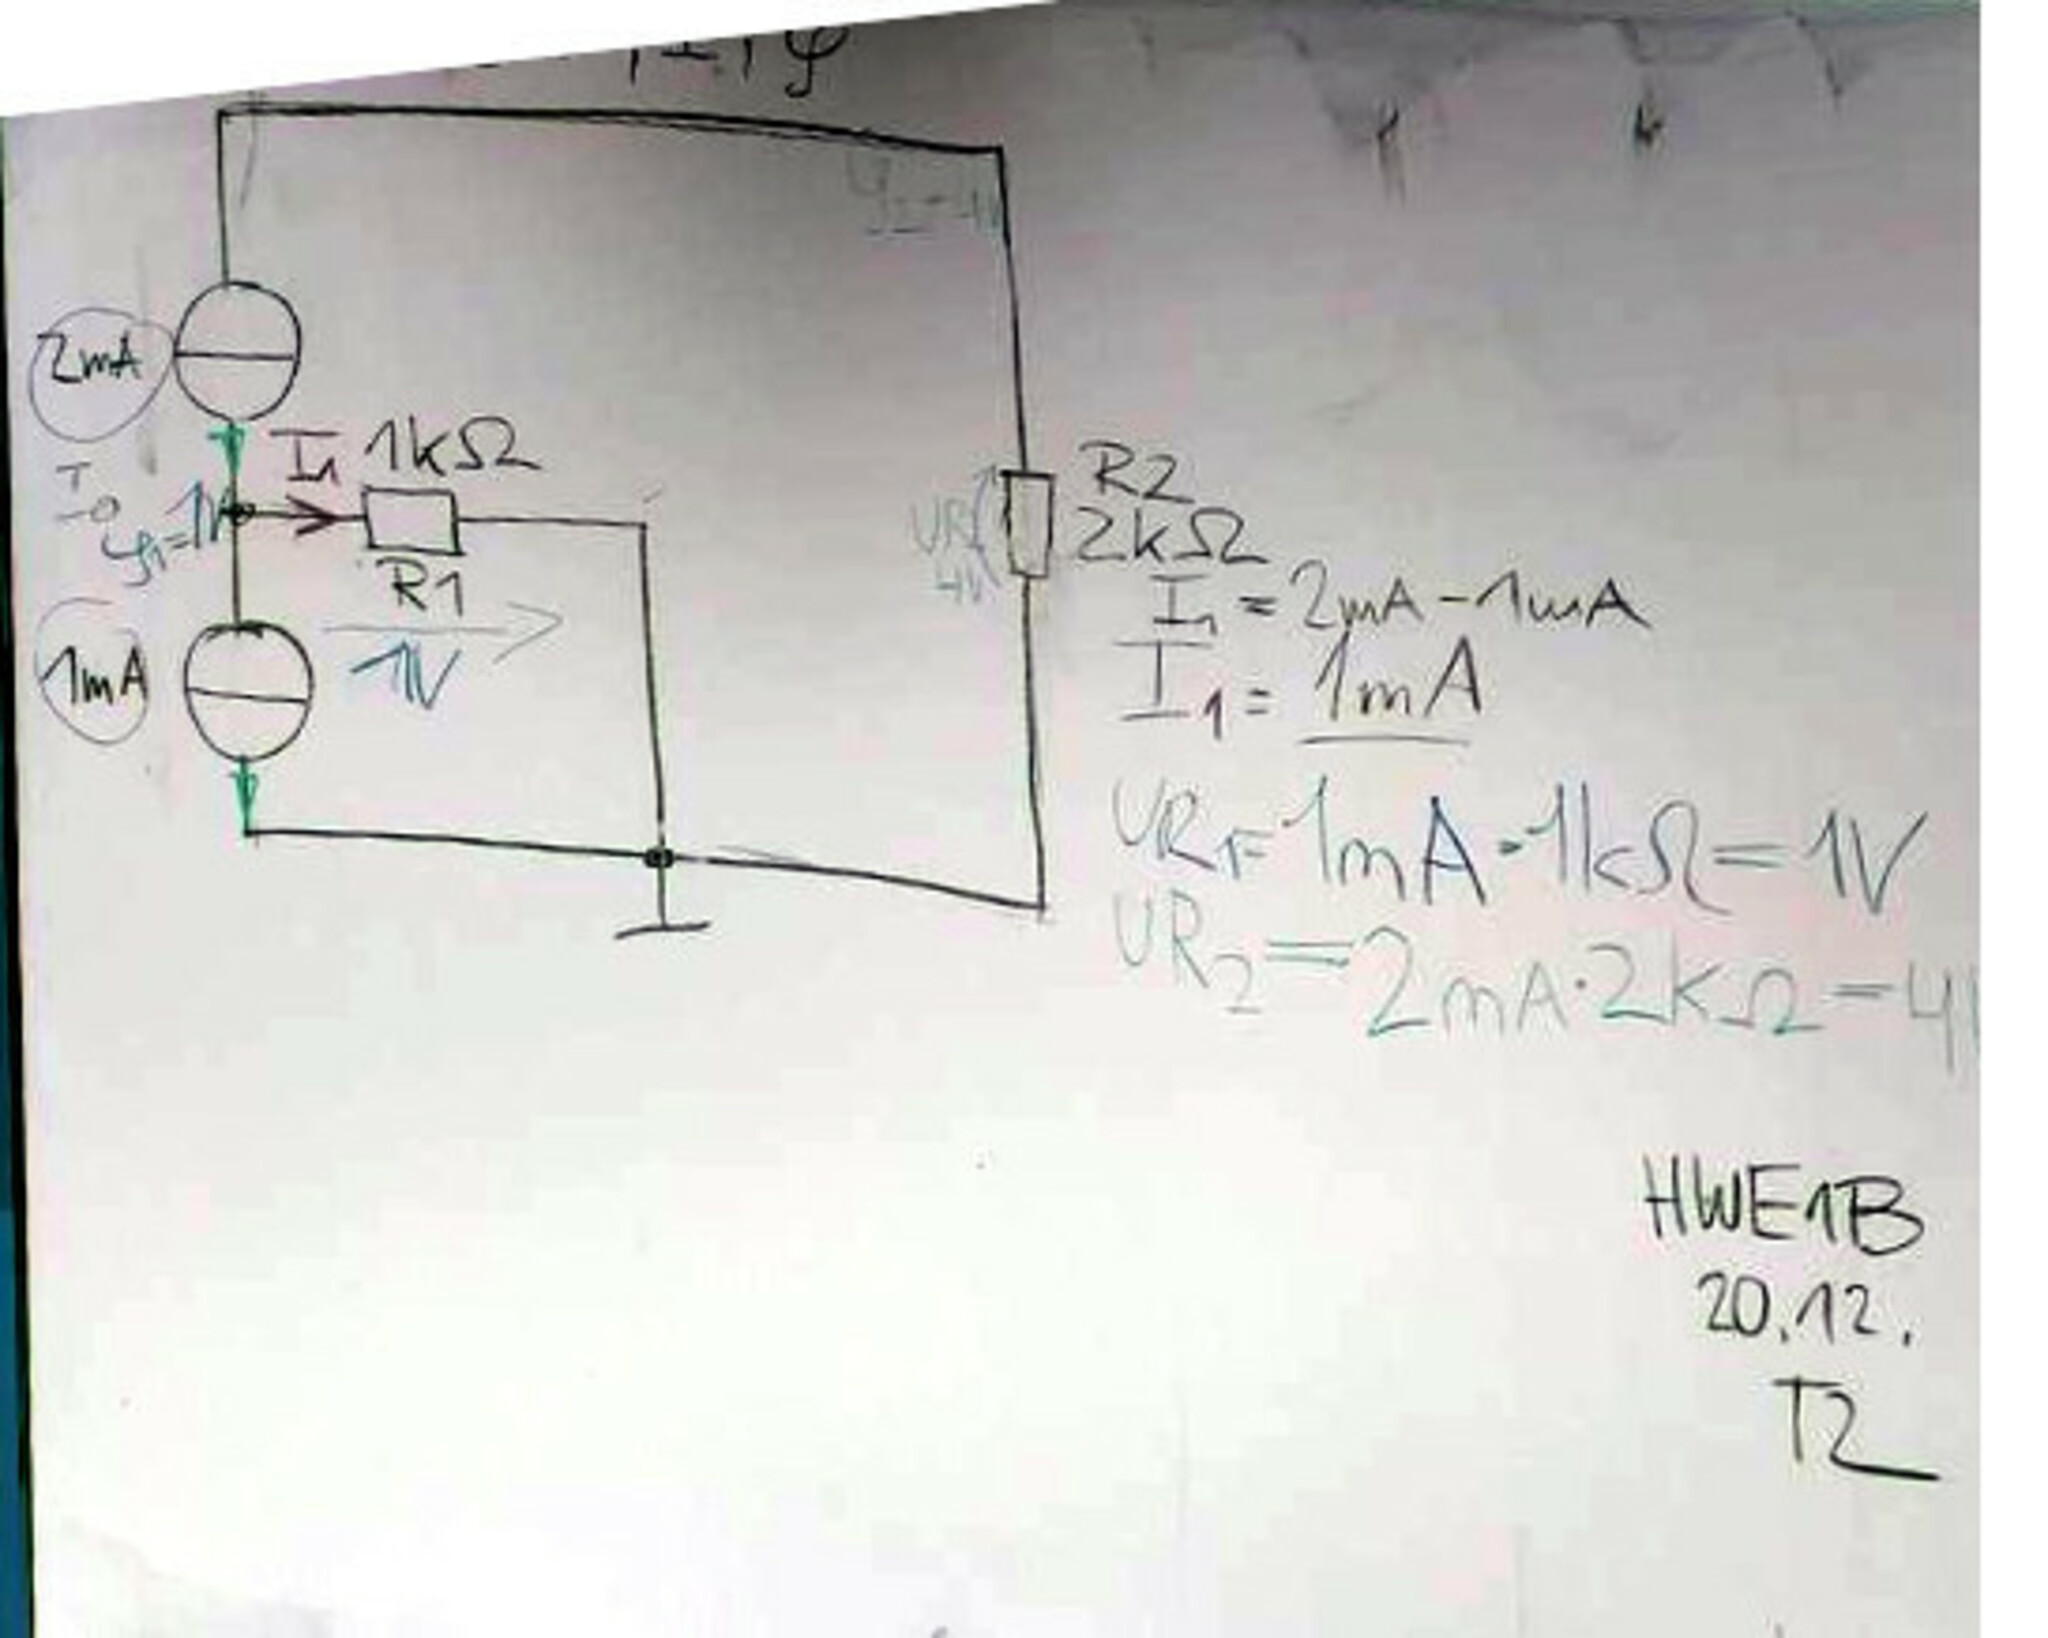 , I, φ
φ2=-4V
2mA
I1 1kΩ
φ1=1V
R1
1mA
1V
R2
2kΩ
UR2
4V
I1 = 2mA-1mA
I1 = 1mA
UR1=1mA·1kΩ=1V
UR2=2mA·2kΩ=4V
HWE1B
20.12.
T2